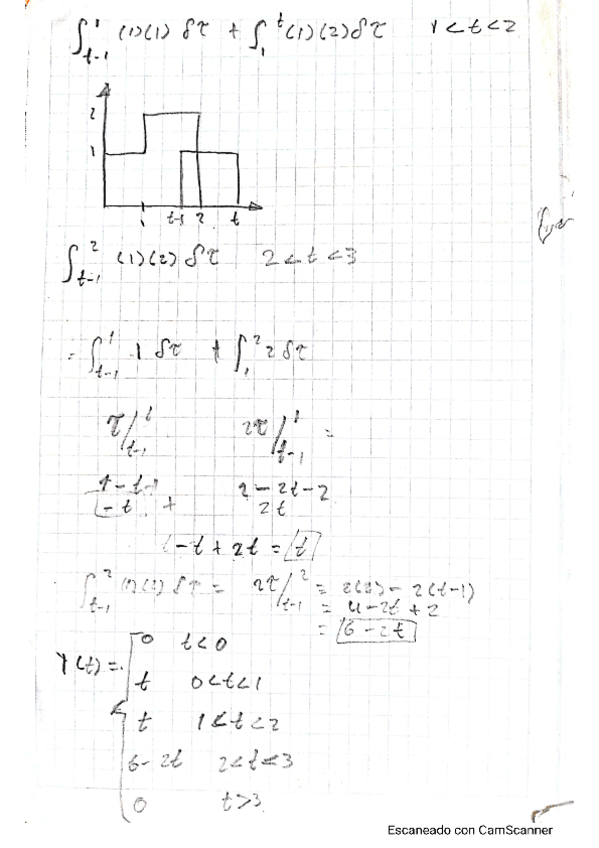 ∫_{t-1}^{1} (1)(1) δτ + ∫_{1}^{t} (1)(2) δτ 1 < t < 2
2
1
1 t-1 2 t
∫_{t-1}^{2} (1)(2) δτ 2 < t < 3
= ∫_{t-1}^{1} 1 δτ + ∫_{1}^{2} 2 δτ
τ/_{t-1}^{1} 2τ/_{t-1}^{1} =
1-t-1 2-2t-2
-t + 2t
-t+2t = t
∫_{t-1}^{2} (1)(2) δτ = 2τ/_{t-1}^{2} = 2(2) - 2(t-1)
= 4-2t+2
= 6-2t
Y(t) = 0 t<0
t 0<t<1
t 1<t<2
6-2t 2<t<3
0 t>3
Escaneado con CamScanner